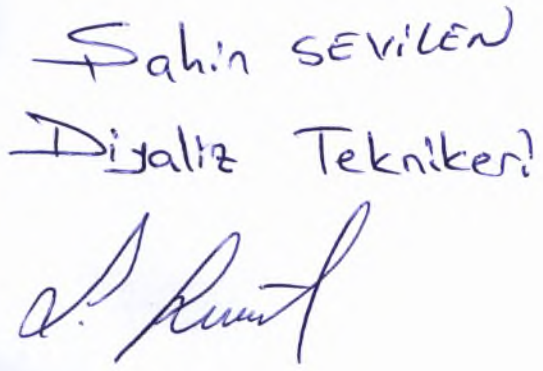 Şahin SEVİLEN
Diyaliz Teknikeri